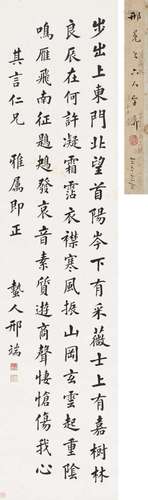 步出上東門北望首陽岑下有采薇士上有嘉樹林
良辰在何許凝霜霑衣襟寒風振山岡玄雲起重陰
鳴雁飛南征鶗鴂發哀音素質遊商聲悽愴傷我心
其言仁兄 雅属即正 蟄人邢端
邢冕之